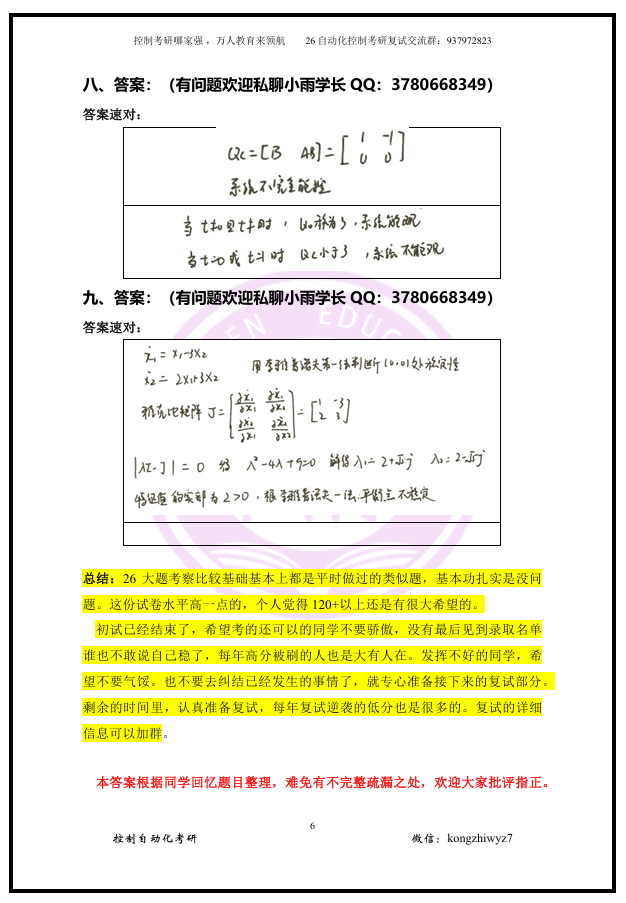 控制考研哪家强，万人教育来领航 26自动化控制考研复试交流群：937972823
八、答案：（有问题欢迎私聊小雨学长QQ：3780668349）
答案速对：
Qc=[B AB]=[1 -1
0 0]
系统不完全能控
时，
,系统能观
时 Qc小于3，系统不能观
九、答案：（有问题欢迎私聊小雨学长QQ：3780668349）
EN EDUC
答案速对：
ẋ₁ = x₁-3x₂
ẋ₂ = 2x₁+3x₂
用李雅普诺夫第一法判断(0,0)处稳定性
雅克比矩阵 J=[∂ẋ₁/∂x₁ ∂ẋ₁/∂x₂
∂ẋ₂/∂x₁ ∂ẋ₂/∂x₂]=[1 -3
2 3]
|λI-J|=0 得 λ²-4λ+9=0 解得λ₁=2+√5j λ₂=2-√5j
特征值的实部为2>0，根李雅普诺夫一法平衡点不稳定
总结：26 大题考察比较基础基本上都是平时做过的类似题，基本功扎实是没问
题。这份试卷水平高一点的，个人觉得120+以上还是有很大希望的。
初试已经结束了，希望考的还可以的同学不要骄傲，没有最后见到录取名单
谁也不敢说自己稳了，每年高分被刷的人也是大有人在。发挥不好的同学，希
望不要气馁。也不要去纠结已经发生的事情了，就专心准备接下来的复试部分。
剩余的时间里，认真准备复试，每年复试逆袭的低分也是很多的。复试的详细
信息可以加群。
本答案根据同学回忆题目整理，难免有不完整疏漏之处，欢迎大家批评指正。
6
控制自动化考研 微信：kongzhiwyz7